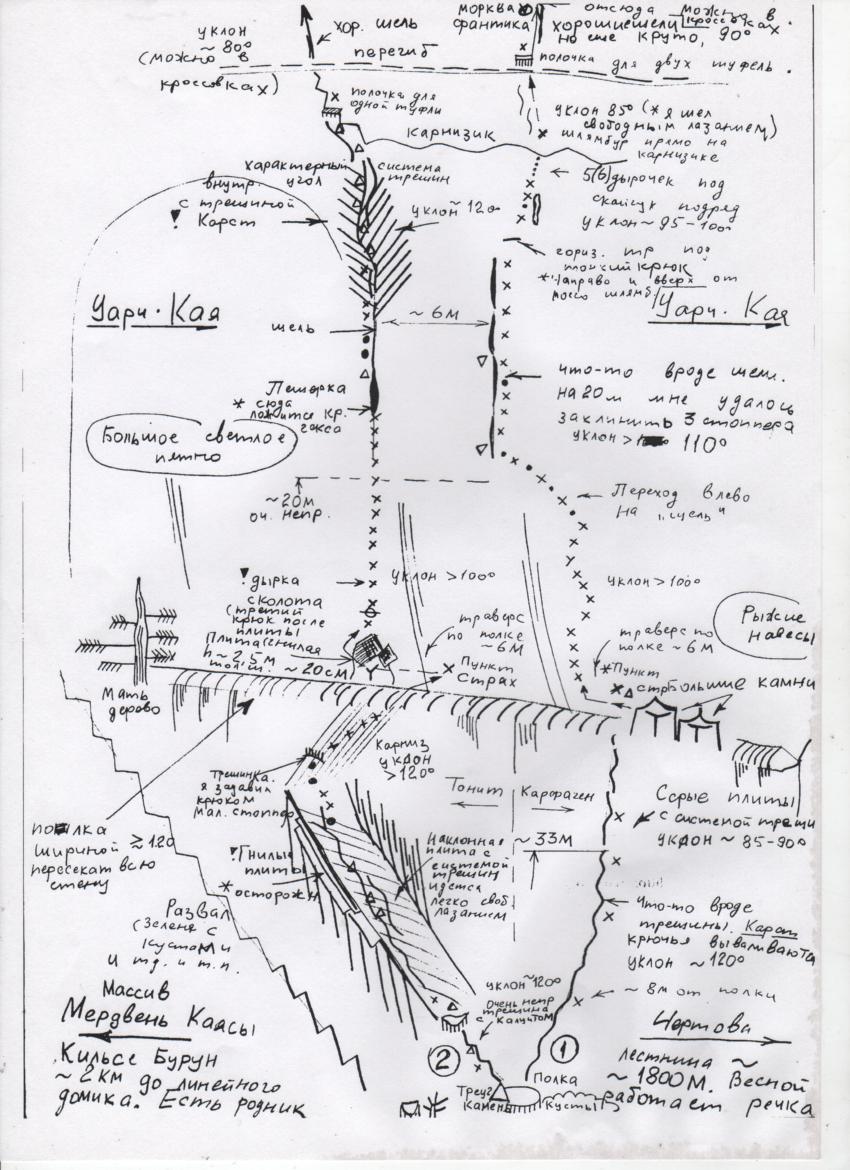 уклон
~80°
(можно в
кроссовках)
хор. щель
перегиб
морква
фантика
отсюда можно в
хорошие щели кроссовках
но еще круто, 90°
полочка для двух туфель.
полочка для
одной туфли
уклон 85° (*я шел
свободным лазанием)
шлямбур прямо на
карнизике
карнизик
характерный
внутр. угол
с трещиной
! Карст
система
трещин
уклон ~120°
5(6) дырочек под
скайхук подряд
уклон ~ 95-100°
гориз. тр под
тонкий крюк
*направо и вверх от
шлямб.
Уарч·Кая
Уарч·Кая
~6м
щель
Пещерка
* сюда
ложится кр.
гекса
что-то вроде щели.
на 20м мне удалось
заклинить 3 стоппера
уклон > 110°
Большое светлое
пятно
~20м
оч. непр.
Переход влево
на "щель"
! дырка
сколота
(третий
крюк после
плиты
Плита гнилая
h ~2,5м
толщ. ~20см
уклон >100°
уклон >100°
Рыжие
навесы
траверс
по полке
~6м
траверс по
полке ~6м
Пункт
Страх
*Пункт
страх
Большие камни
Мать
дерево
Карниз
уклон
>120°
Трещинка.
я задавил
крюком
мал. стоппер
Тонит
Карфаген
Серые плиты
с системой трещин
уклон ~ 85-90°
полка
шириной ≥120
пересекат всю
стену
! Гнилые
плиты
* осторожн
Наклонная
плита с
системой
трещин
идется
легко своб
лазанием
~33м
Развал
(Зелень с
кустами
и тд. и т.п.
Что-то вроде
трещины. Карст
крючья вываливаются
уклон ~120°
уклон ~120°
Очень непр
трещина
с кальцитом
~8м от полки
Массив
Мердвень Каясы
Кильсе Бурун
~2км до линейного
домика. Есть родник
Чертова
лестница ~
~1800м. Весной
работает речка
2
1
Треуг
Камень
Полка
Кусты